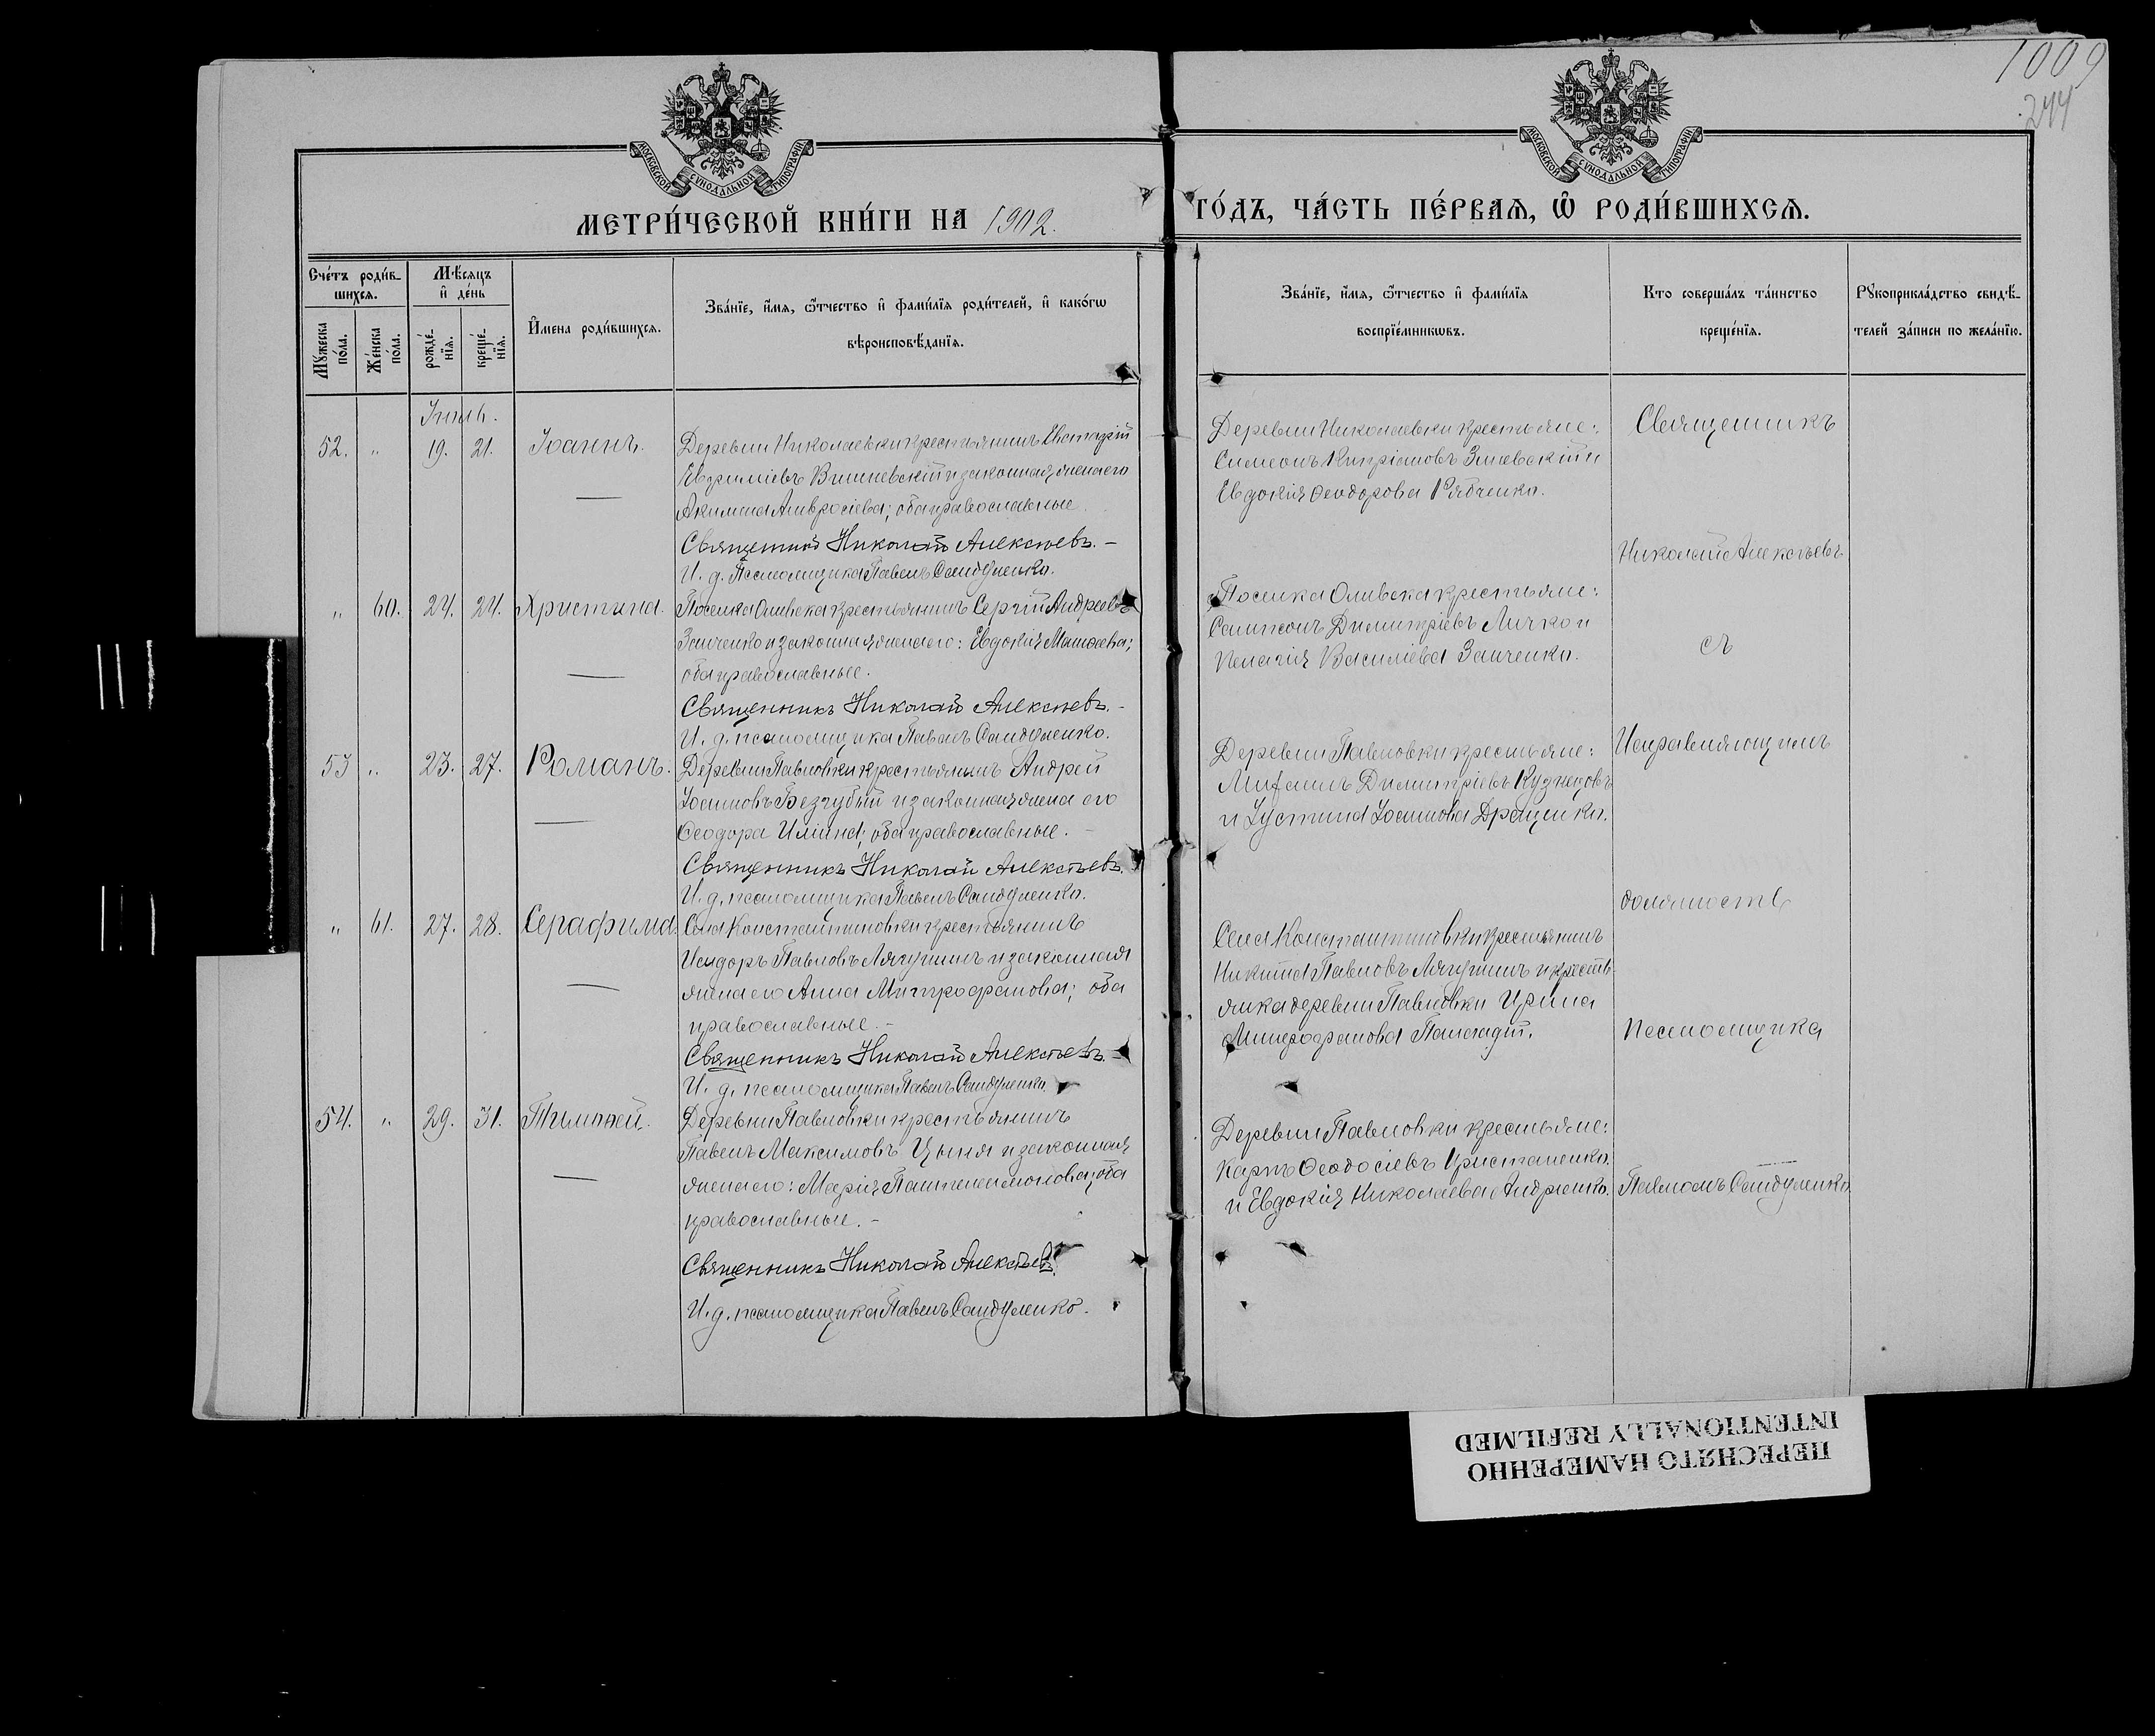 1009
244
МОСКОВСКОЙ СѴНОДАЛЬНОЙ ТИПОГРАФІИ
МОСКОВСКОЙ СѴНОДАЛЬНОЙ ТИПОГРАФІИ
МЕТРИ́ЧЕСКОЙ КНИ́ГИ НА 1902.
ГО́ДЪ, ЧА́СТЬ ПЕ́РВАѦ, Ѡ҆ РОДИ́ВШИХСѦ.
Сче́тъ роди́в-
шихсѧ.
Мꙋ́жеска по́ла.
Же́нска по́ла.
Мѣ́сѧцъ
и҆ де́нь
рожде́-
нїѧ.
креще́-
нїѧ.
И҆мена роди́вшихсѧ.
Зва́нїе, и҆́мѧ, ѻ҆́тчество и҆ фами́лїѧ роди́телей, и҆ како́гѡ
вѣроисповѣ́данїѧ.
Зва́нїе, и҆́мѧ, ѻ҆́тчество и҆ фами́лїѧ
воспрїе́мникѡвъ.
Кто соверша́лъ та́инство
креще́нїѧ.
Рꙋкоприкла́дство свидѣ́-
телей за́писи по жела́нїю.
Іюль.
52. " 19. 21. Іоаннъ.
Деревни Николаевки крестьянинъ Евстафій
Евфиміевъ Вишневскій и законная жена его
Акилина Амвросіева; оба православные.
Священникъ Николай Алексѣевъ.-
И. д. Псаломщика Павелъ Сандуленко.
Деревни Николаевки крестьяне:
Симеонъ Кипріановъ Змевскій и
Евдокія Ѳеодорова Рябченко.
Священникъ
Николай Алексѣевъ
" 60. 24. 24. Христина.
Поселка крестьянинъ Сергій Андреевъ
Заиченко и законная жена его: Евдокія Матѳеева;
оба православные.
Священникъ Николай Алексѣевъ.-
И. д. псаломщика Павелъ Сандуленко.
Поселка крестьяне:
Сампсонъ Димитріевъ Личко и
Пелагія Василіева Заиченко.
съ
53 " 23. 27. Романъ.
Деревни Павловки крестьянинъ Андрей
Іоанновъ Беззубый и законная жена его
Ѳеодора Иліина; оба православные.-
Священникъ Николай Алексѣевъ.
И. д. псаломщика Павелъ Сандуленко.
Деревни Павловки крестьяне:
Михаилъ Димитріевъ Кузнецовъ
и Іустина Іоаннова
Исправляющимъ
должность
" 61. 27. 28. Серафима.
Села Константиновки крестьянинъ
Исидоръ Павловъ Лягушинъ и законная
жена его Анна Митрофанова; оба
православные.-
Священникъ Николай Алексѣевъ.-
И. д. псаломщика Павелъ Сандуленко.
Села Константиновки крестьянинъ
Никита Павловъ Лягушинъ и кресть-
янка деревни Павловки Ирина
Митрофанова
псаломщика
54. " 29. 31. Тимоѳей.
Деревни Павловки крестьянинъ
Павелъ Максимовъ Цыня и законная
жена его: Марія Пантелеимонова; оба
православные.-
Священникъ Николай Алексѣевъ.
И. д. псаломщика Павелъ Сандуленко.
Деревни Павловки крестьяне:
Карпъ Ѳеодосіевъ
и Евдокія Николаева Андрienко.
Павломъ Сандуленко.
ПЕРЕСНЯТО НАМЕРЕННО
INTENTIONALLY REFILMED